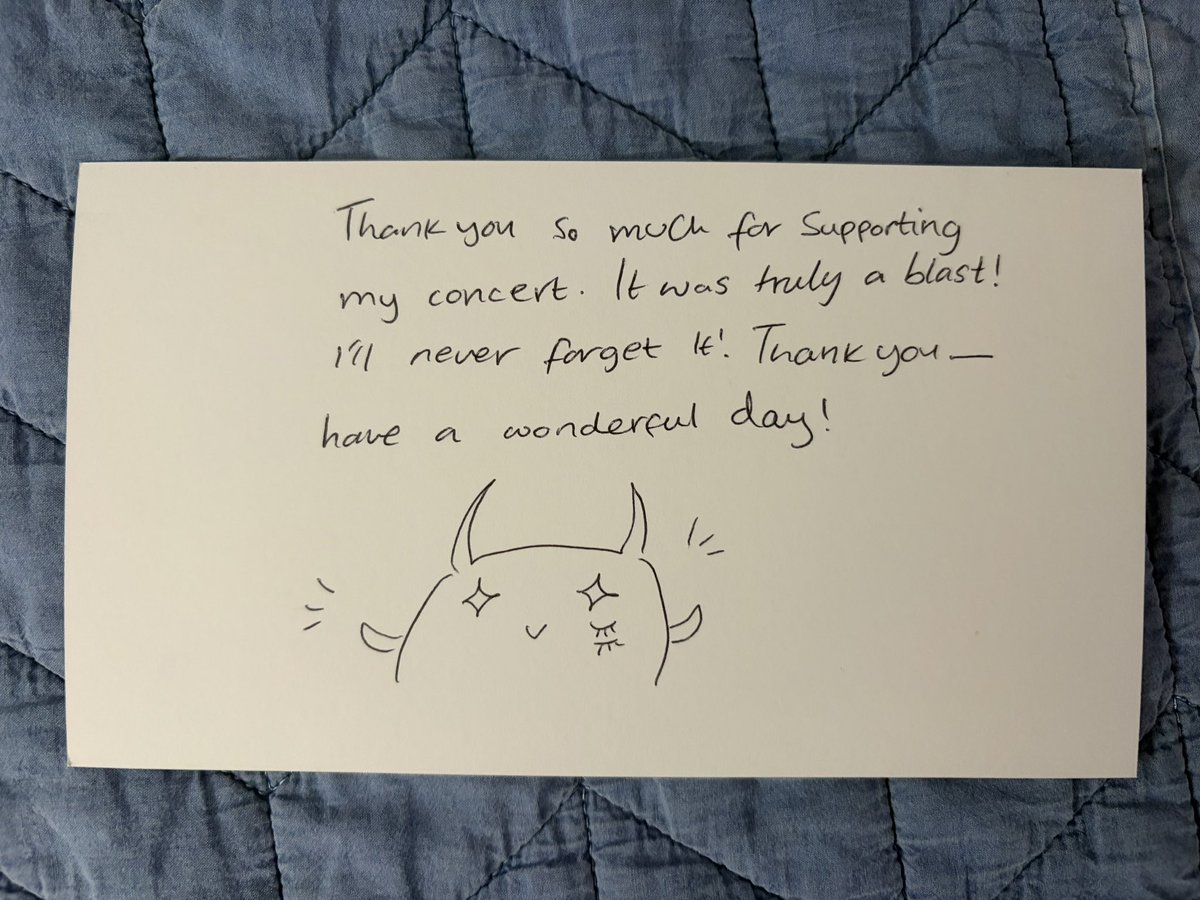 Thank you so much for supporting
my concert. It was truly a blast!
I'll never forget it! Thank you —
have a wonderful day!